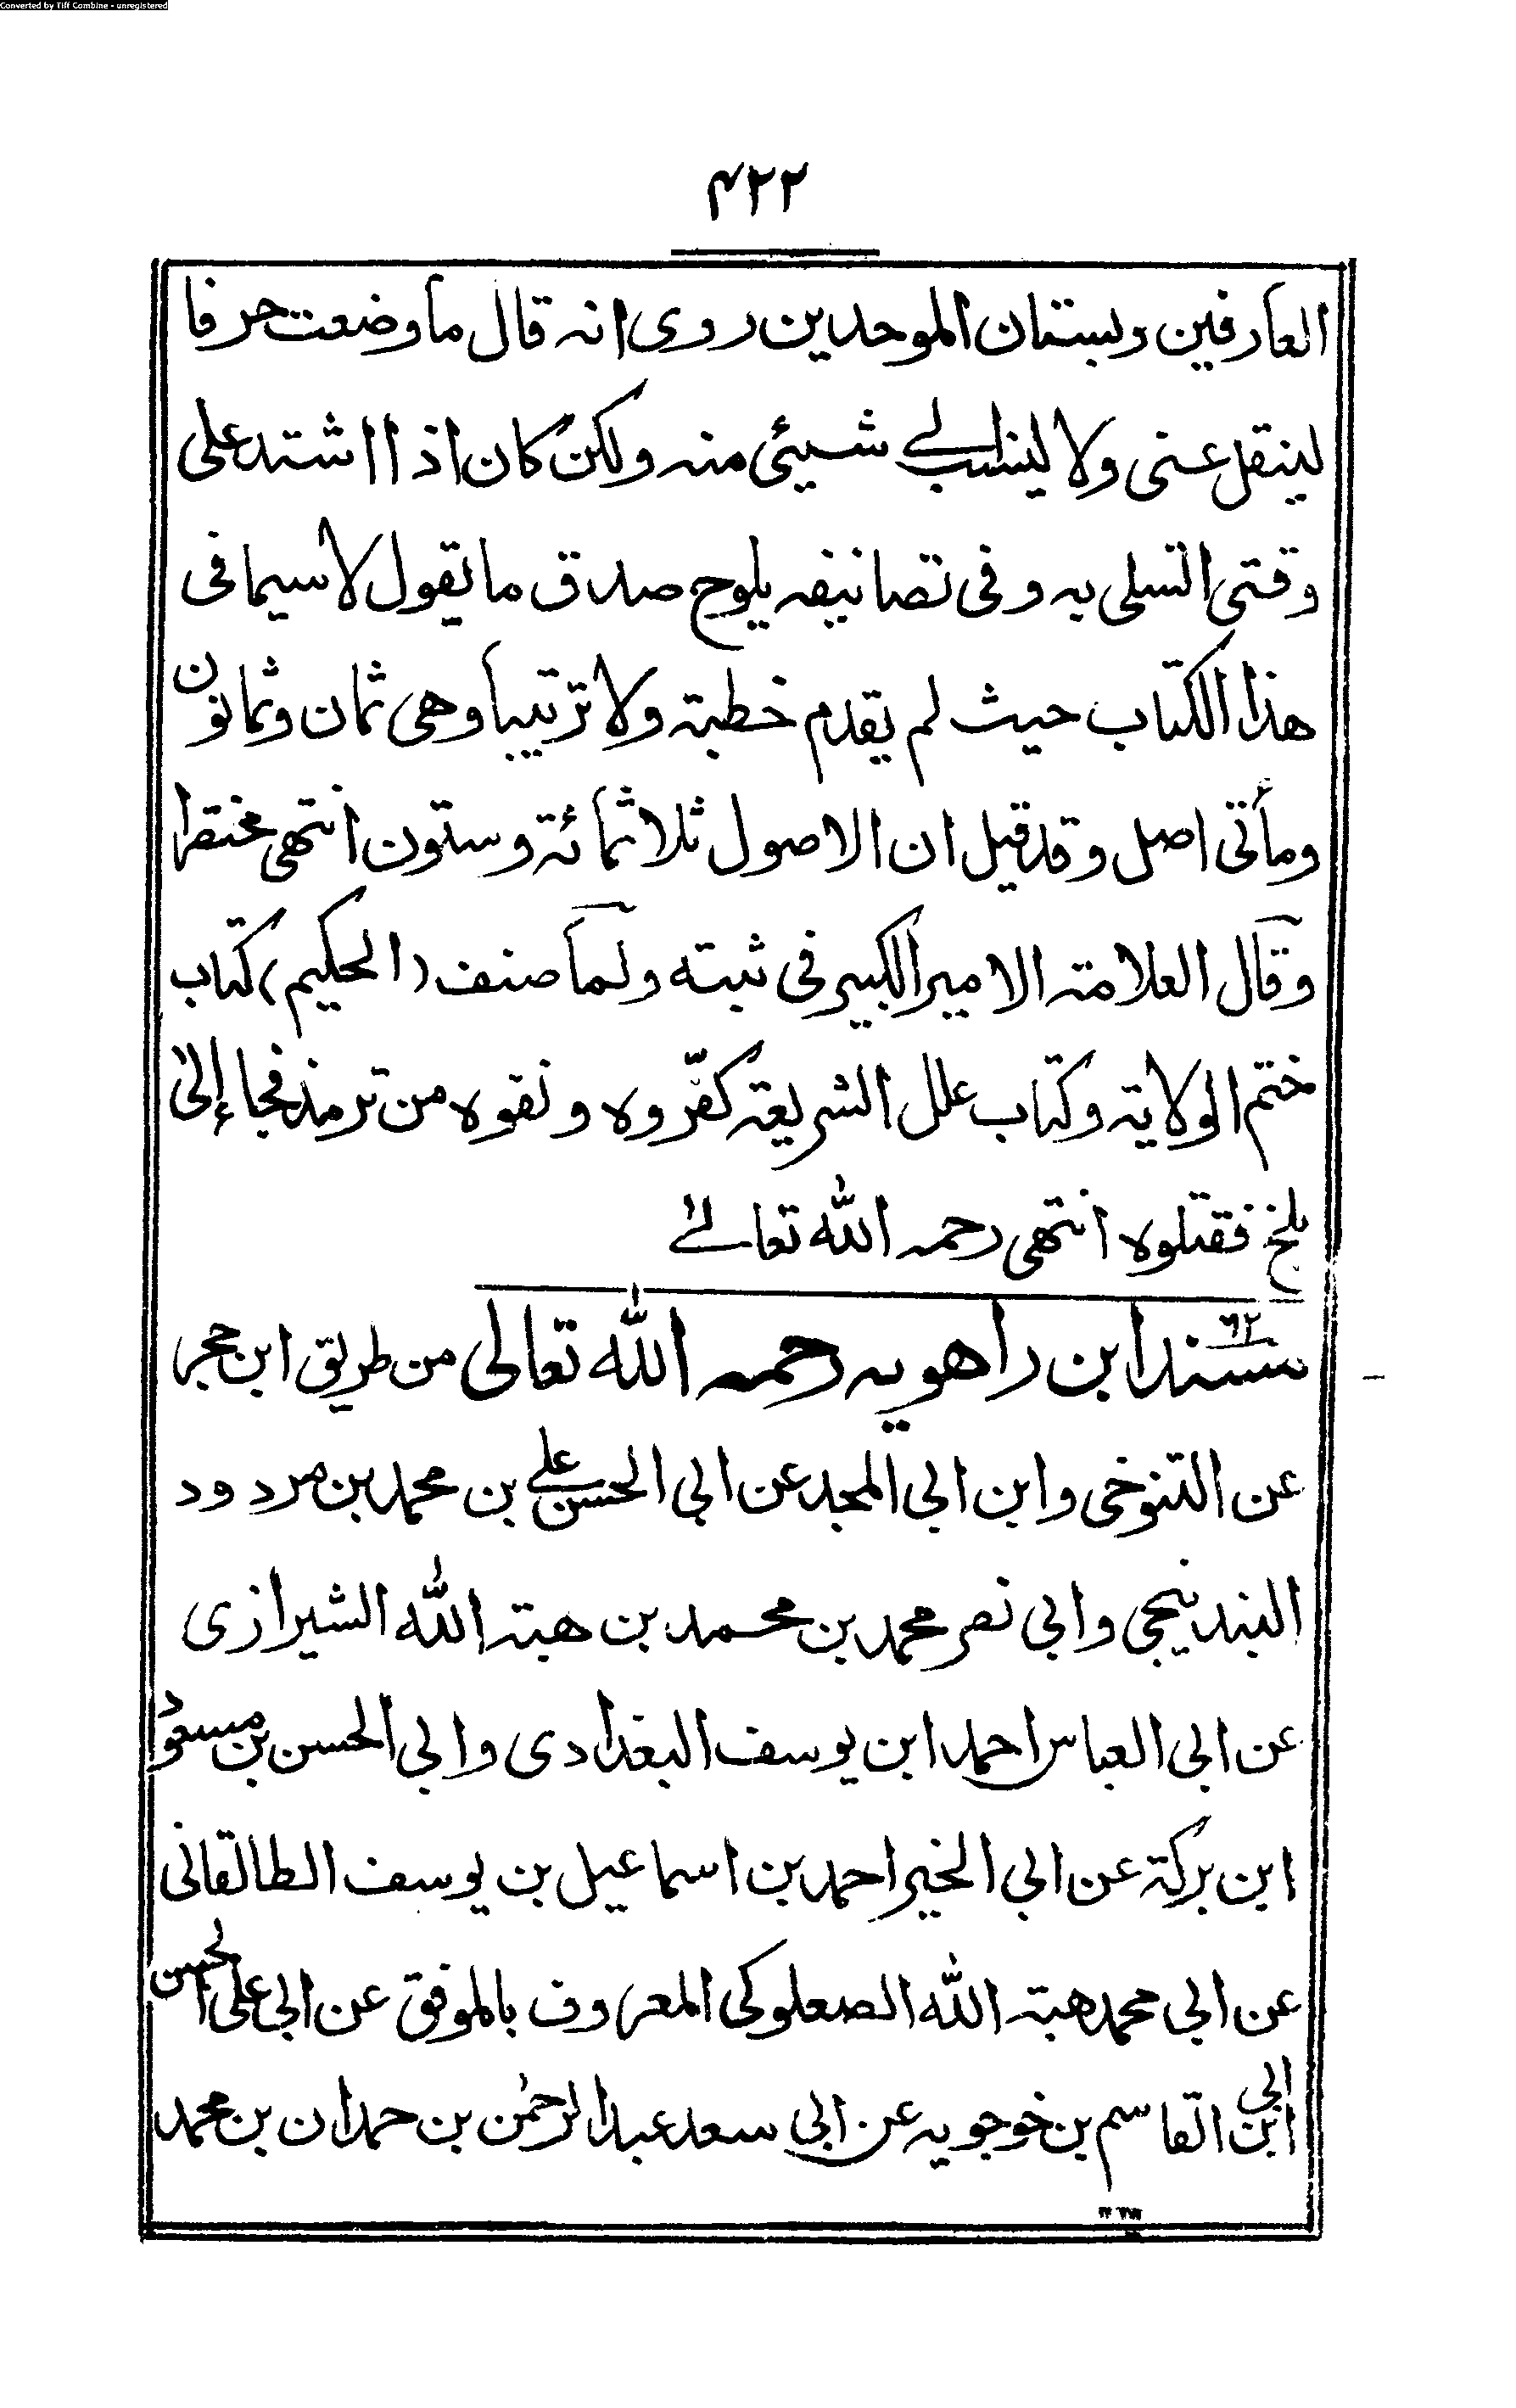 Converted by Tiff Combine - unregistered
۴۲۲
العارفين وبستان الموحدين روى انه قال ما وضعت حرفا
لينقل عنى ولا لينسب الى شيئى منه ولكن كان اذا اشتد على
وقتى اتسلى به وفى تصانيفه يلوح صدق ما يقول لا سيما فى
هذا الكتاب حيث لم يقدم خطبة ولا ترتيبا وهى ثمان وثمانون
ومأتى اصل وقد قيل ان الاصول ثلاثمائة وستون انتهى مختصرا
وقال العلامة الامير الكبير فى ثبته ولما صنف (الحكيم) كتاب
ختم الولاية وكتاب علل الشريعة كفّروه ونفوه من ترمذ فجاء إلى
بلخ فقتلوه انتهى رحمه الله تعالى
۶۲
مسند ابن راهويه رحمه الله تعالى من طريق ابن حجر
عن التنوخى وابن ابى المجد عن ابى الحسن على بن محمد بن مردود
البندنيجى وابى نصر محمد بن محمد بن هبة الله الشيرازى
عن ابى العباس احمد ابن يوسف البغدادى وابى الحسن بن مسعود
ابن بركة عن ابى الخير احمد بن اسماعيل بن يوسف الطالقانى
عن ابى محمد هبة الله الصعلوكى المعروف بالموفق عن ابى على الحسن
ابن ابى القاسم بن خوجويه عن ابى سعد عبد الرحمن بن حمدان بن محمد